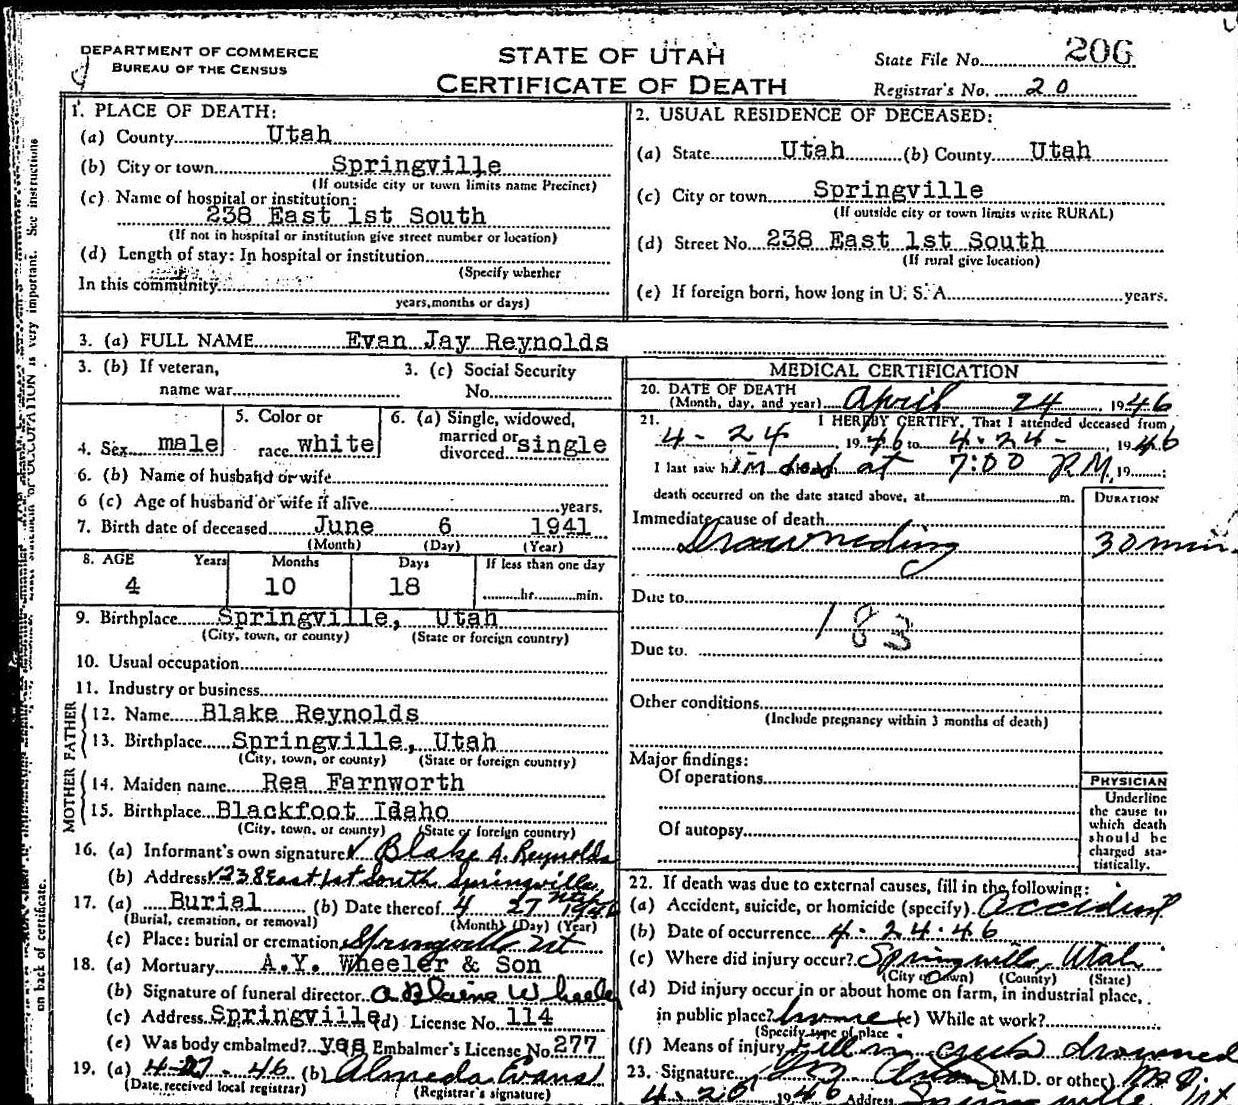 DEPARTMENT OF COMMERCE
BUREAU OF THE CENSUS
STATE OF UTAH
CERTIFICATE OF DEATH
State File No. 206
Registrar's No. 20
1. PLACE OF DEATH:
(a) County Utah
(b) City or town Springville
(If outside city or town limits name Precinct)
(c) Name of hospital or institution:
238 East 1st South
(If not in hospital or institution give street number or location)
(d) Length of stay: In hospital or institution
(Specify whether
In this community
years, months or days)
2. USUAL RESIDENCE OF DECEASED:
(a) State Utah (b) County Utah
(c) City or town Springville
(If outside city or town limits write RURAL)
(d) Street No. 238 East 1st South
(If rural give location)
(e) If foreign born, how long in U. S. A. years.
3. (a) FULL NAME Evan Jay Reynolds
3. (b) If veteran,
name war
3. (c) Social Security
No.
4. Sex male
5. Color or
race white
6. (a) Single, widowed,
married or
divorced single
6. (b) Name of husband or wife
6 (c) Age of husband or wife if alive years.
7. Birth date of deceased June 6 1941
(Month) (Day) (Year)
8. AGE Years Months Days If less than one day
4 10 18 hr. min.
9. Birthplace Springville, Utah
(City, town, or county) (State or foreign country)
10. Usual occupation
11. Industry or business
FATHER
12. Name Blake Reynolds
13. Birthplace Springville, Utah
(City, town, or county) (State or foreign country)
MOTHER
14. Maiden name Rea Farnworth
15. Birthplace Blackfoot Idaho
(City, town, or county) (State or foreign country)
16. (a) Informant's own signature Blake A. Reynolds
(b) Address 238 East 1st South Springville,
17. (a) Burial (b) Date thereof 4 27 1946
(Burial, cremation, or removal) (Month) (Day) (Year)
(c) Place: burial or cremation Springville Ut
18. (a) Mortuary A.Y. Wheeler & Son
(b) Signature of funeral director A Blaine Wheeler
(c) Address Springville (d) License No. 114
(e) Was body embalmed? yes Embalmer's License No. 277
19. (a) 4-27-46 (b) Almeda Evans
(Date received local registrar) (Registrar's signature)
MEDICAL CERTIFICATION
20. DATE OF DEATH
(Month, day, and year) April 24, 1946
21. I HEREBY CERTIFY, That I attended deceased from
4-24, 1946 to 4-24-, 1946
I last saw him dead at 7:00 P.M, 19 ;
death occurred on the date stated above, at m.
DURATION
Immediate cause of death
Drowneding 30 min.
Due to
183
Due to
Other conditions
(Include pregnancy within 3 months of death)
Major findings:
Of operations
Of autopsy
PHYSICIAN
Underline
the cause to
which death
should be
charged sta-
tistically.
22. If death was due to external causes, fill in the following:
(a) Accident, suicide, or homicide (specify) Accident
(b) Date of occurrence 4-24-46
(c) Where did injury occur? Springville, Utah
(City or town) (County) (State)
(d) Did injury occur in or about home on farm, in industrial place,
in public place? home (e) While at work?
(Specify type of place
(f) Means of injury Fell in creek drowned
23. Signature (M.D. or other) M.D.
1946 Address Springville, Ut
important. See instructions
on back of certificate.